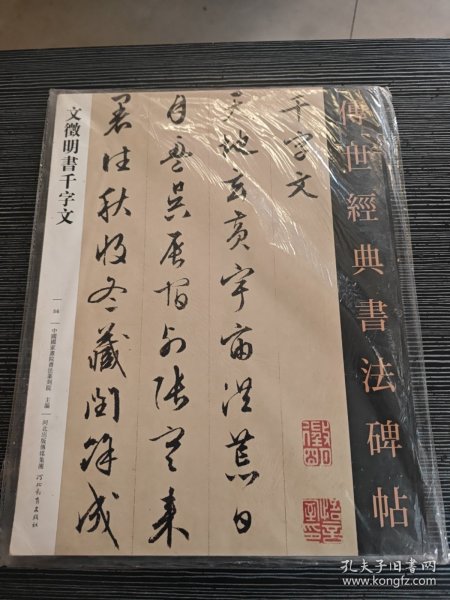 傳世經典書法碑帖
千字文
天地玄黃宇宙洪荒日
月盈昃辰宿列張寒来
暑往秋收冬藏閏餘成
文徵明書千字文
56
中國國家畫院書法篆刻院 主編
河北出版傳媒集團
河北教育出版社
孔夫子旧书网
www.kongfz.com